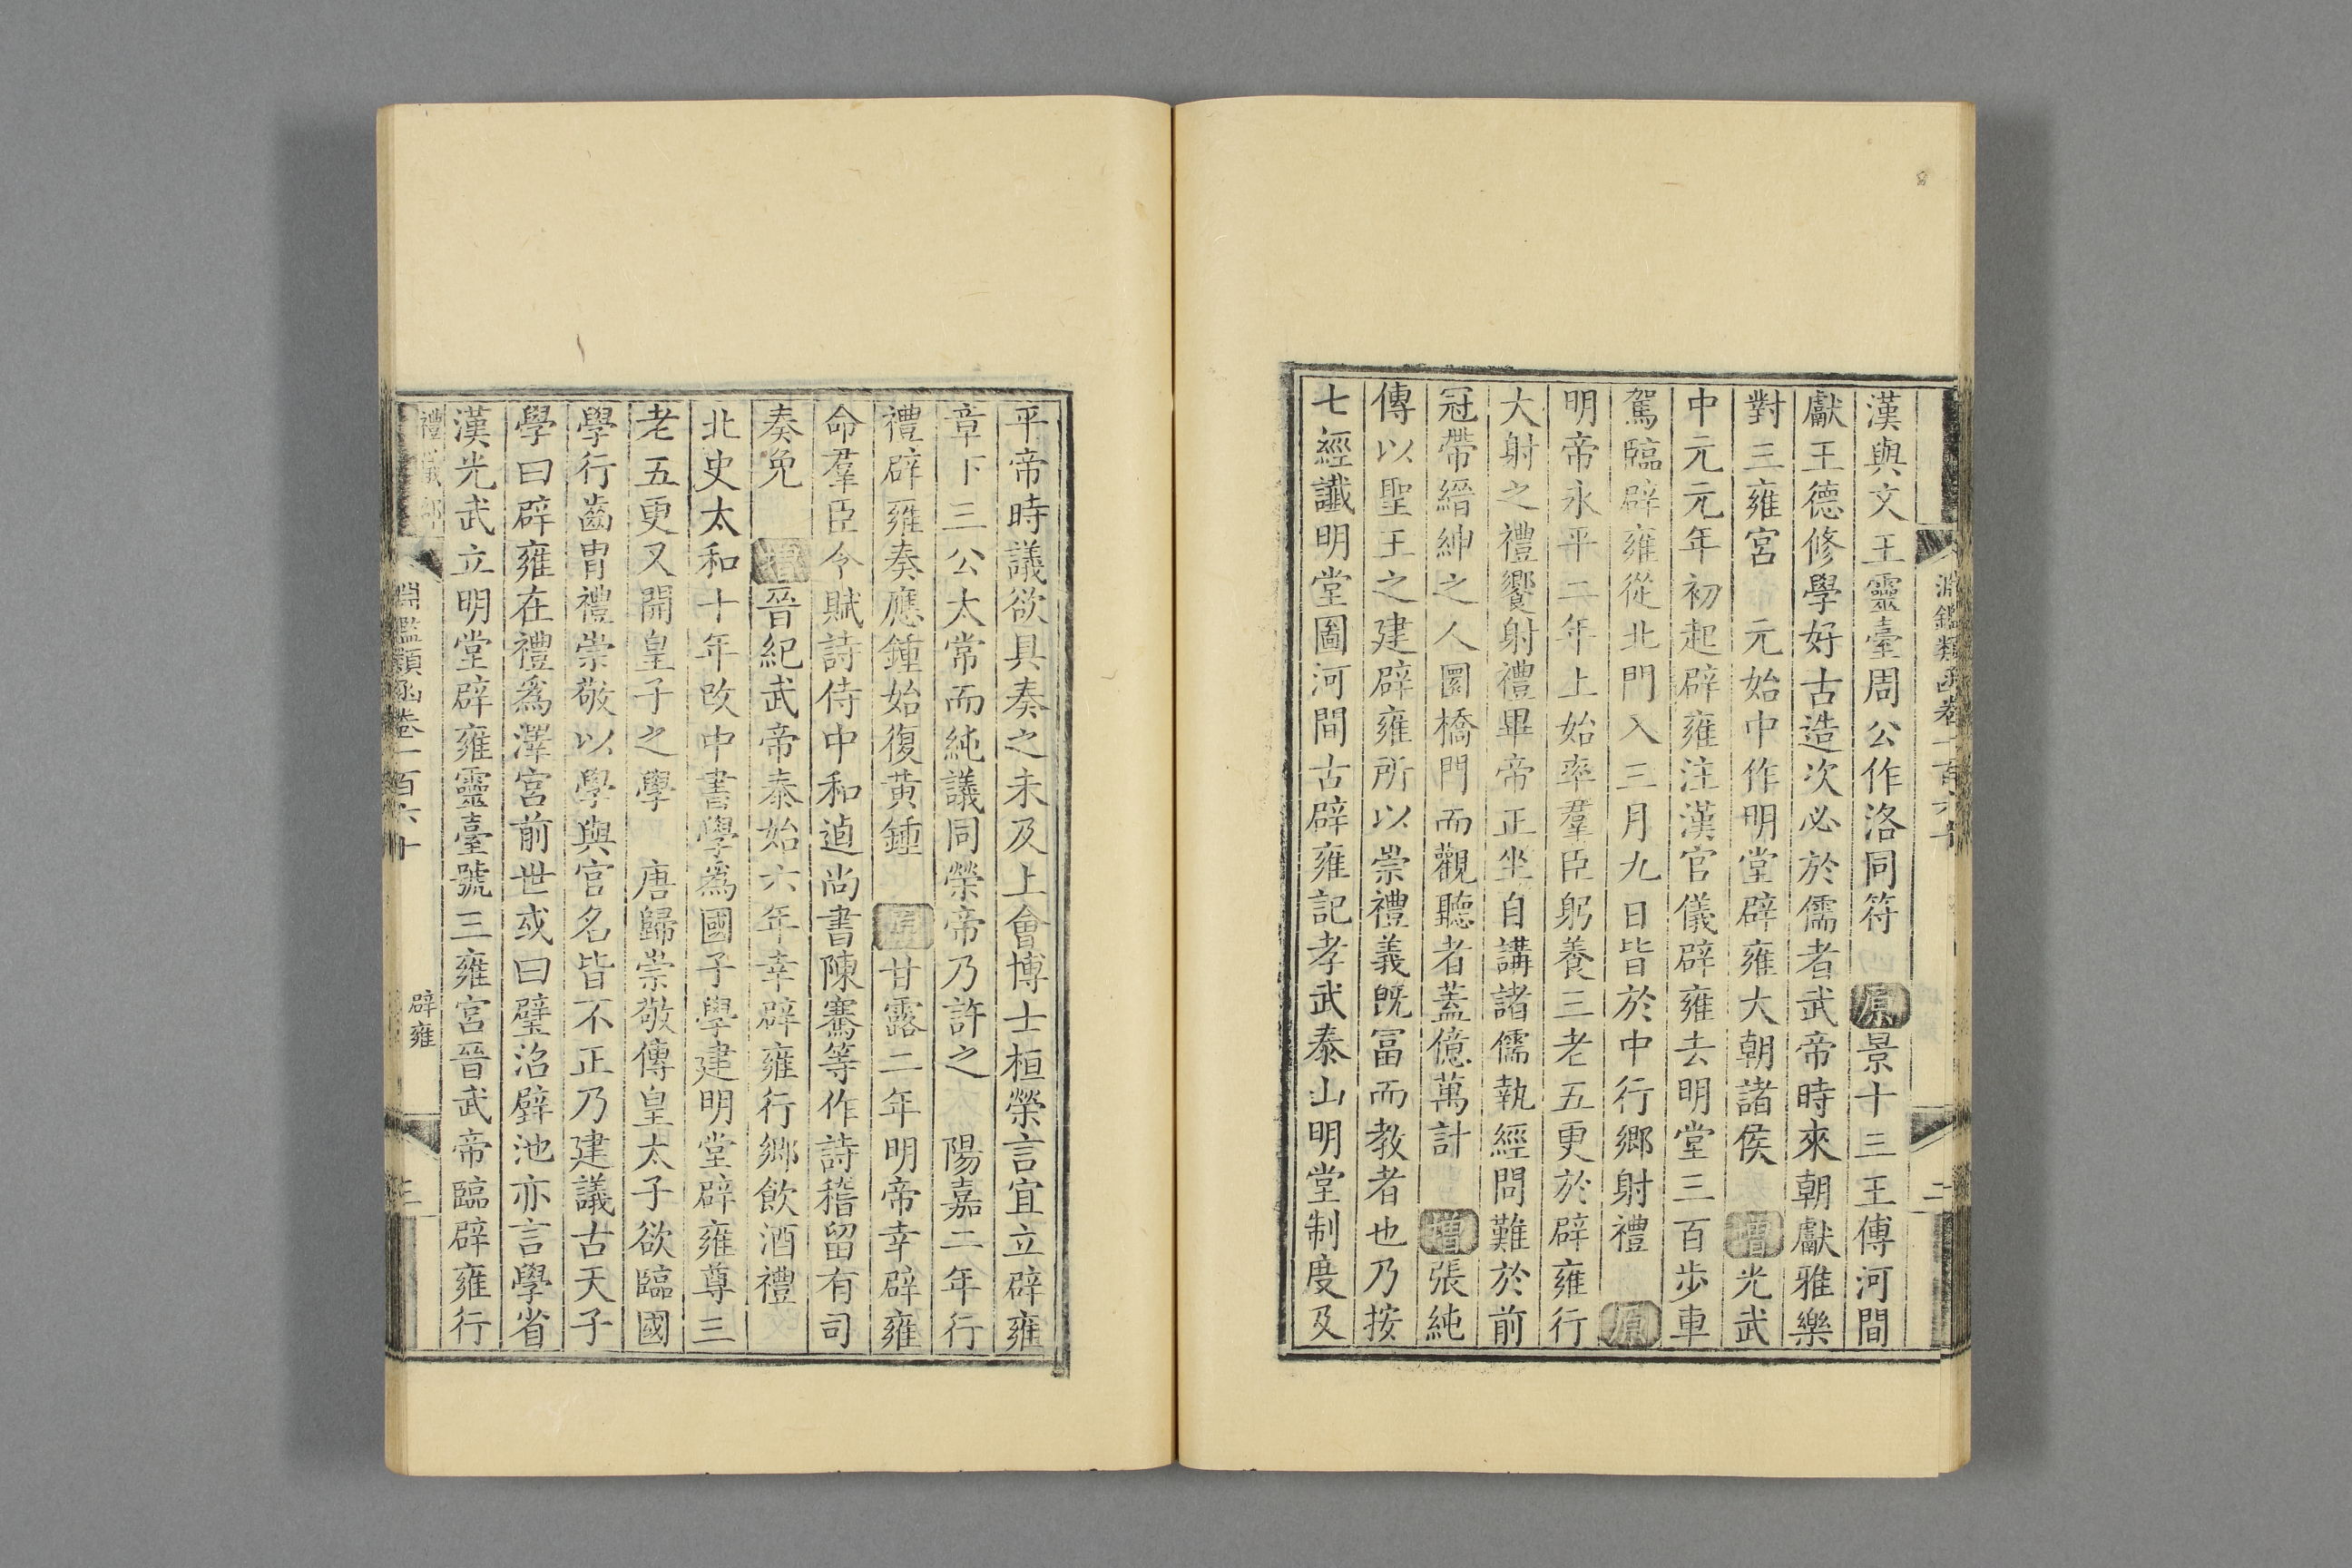 淵鑑類函卷一百六十
二
漢與文王靈臺周公作洛同符 原景十三王傳河間
獻王德修學好古造次必於儒者武帝時來朝獻雅樂
對三雍宮 元始中作明堂辟雍大朝諸侯 增光武
中元元年初起辟雍注漢官儀辟雍去明堂三百步車
駕臨辟雍從北門入三月九日皆於中行鄉射禮 原
明帝永平二年上始率羣臣躬養三老五更於辟雍行
大射之禮饗射禮畢帝正坐自講諸儒執經問難於前
冠帶縉紳之人圜橋門而觀聽者蓋億萬計 增張純
傳以聖王之建辟雍所以崇禮義既富而教者也乃按
七經讖明堂圖河間古辟雍記孝武泰山明堂制度及
平帝時議欲具奏之未及上會博士桓榮言宜立辟雍
章下三公太常而純議同榮帝乃許之 陽嘉二年行
禮辟雍奏應鍾始復黃鍾 原甘露二年明帝幸辟雍
命羣臣令賦詩侍中和逌尚書陳騫等作詩稽留有司
奏免 增晉紀武帝泰始六年幸辟雍行鄉飲酒禮
北史太和十年改中書學為國子學建明堂辟雍尊三
老五更又開皇子之學 唐歸崇敬傳皇太子欲臨國
學行齒胄禮崇敬以學與官名皆不正乃建議古天子
學曰辟雍在禮爲澤宮前世或曰璧沼壁池亦言學省
漢光武立明堂辟雍靈臺號三雍宮晉武帝臨辟雍行
禮儀部
淵鑑類函卷一百六十
辟雍
三